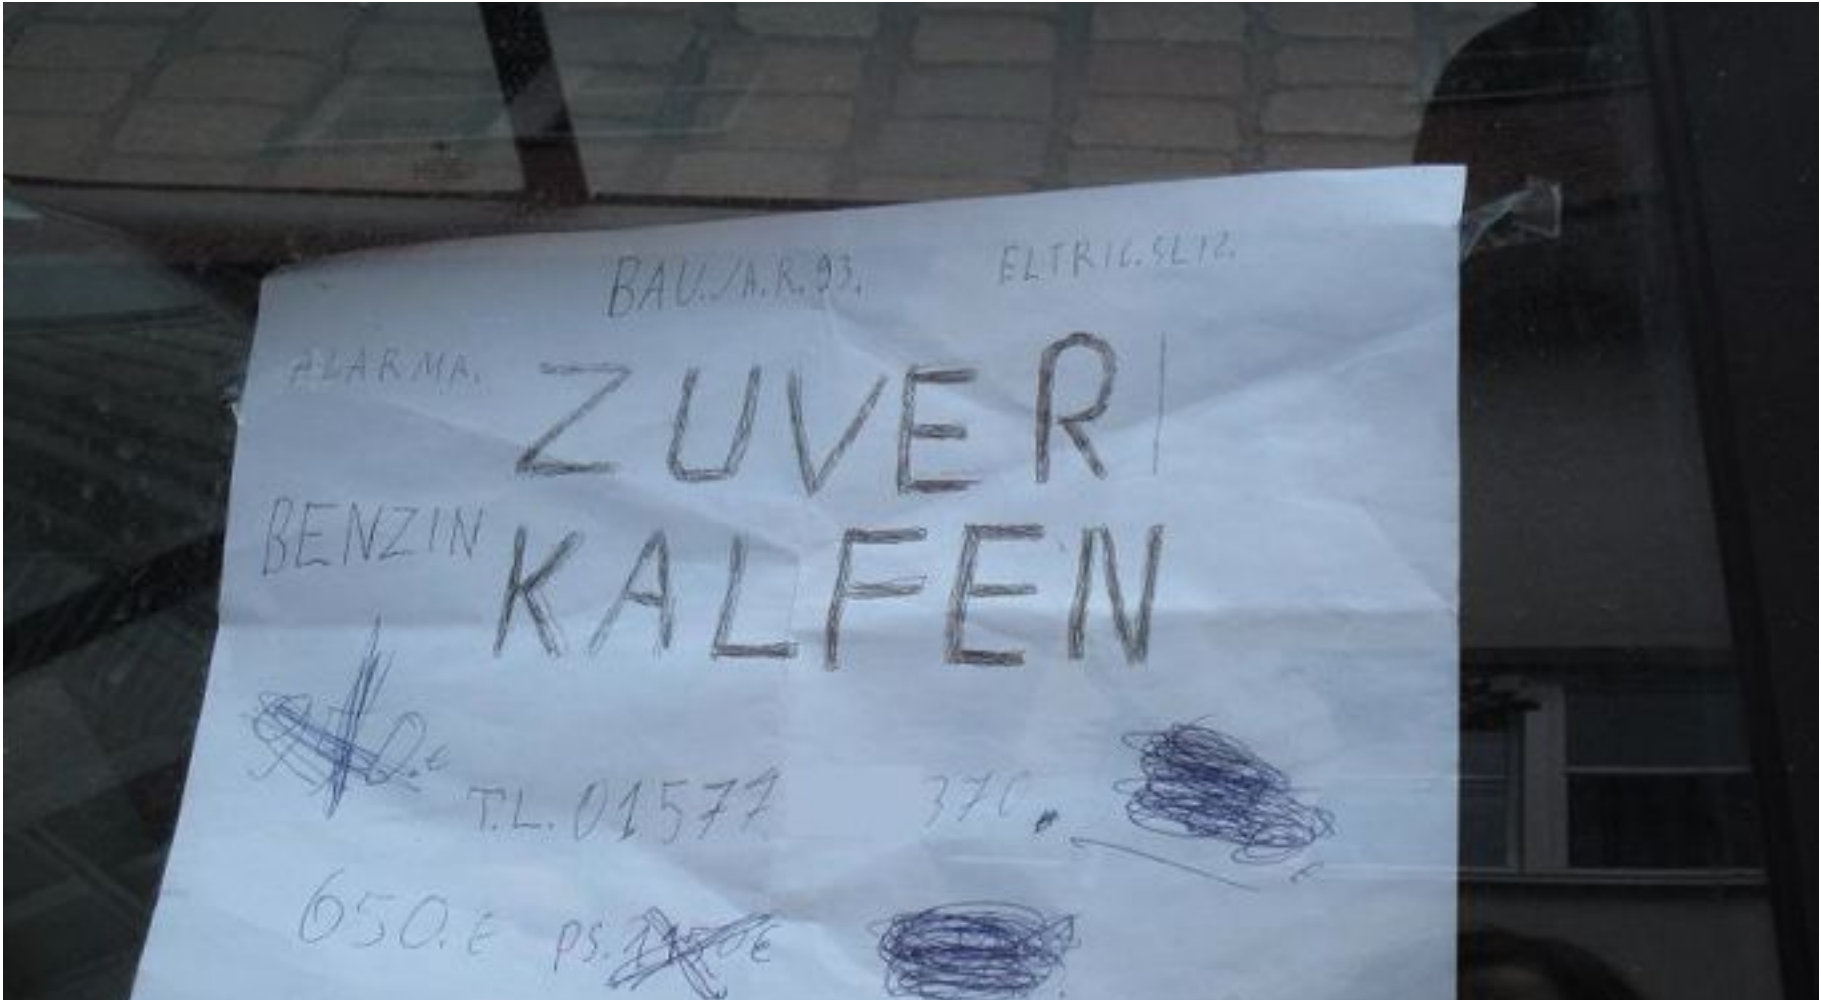 BAU.JA.R.93. ELTRIC.SLIZ.
ALARMA. ZUVER
BENZIN KALFEN
T.L. 01577 370.
650.E PS.